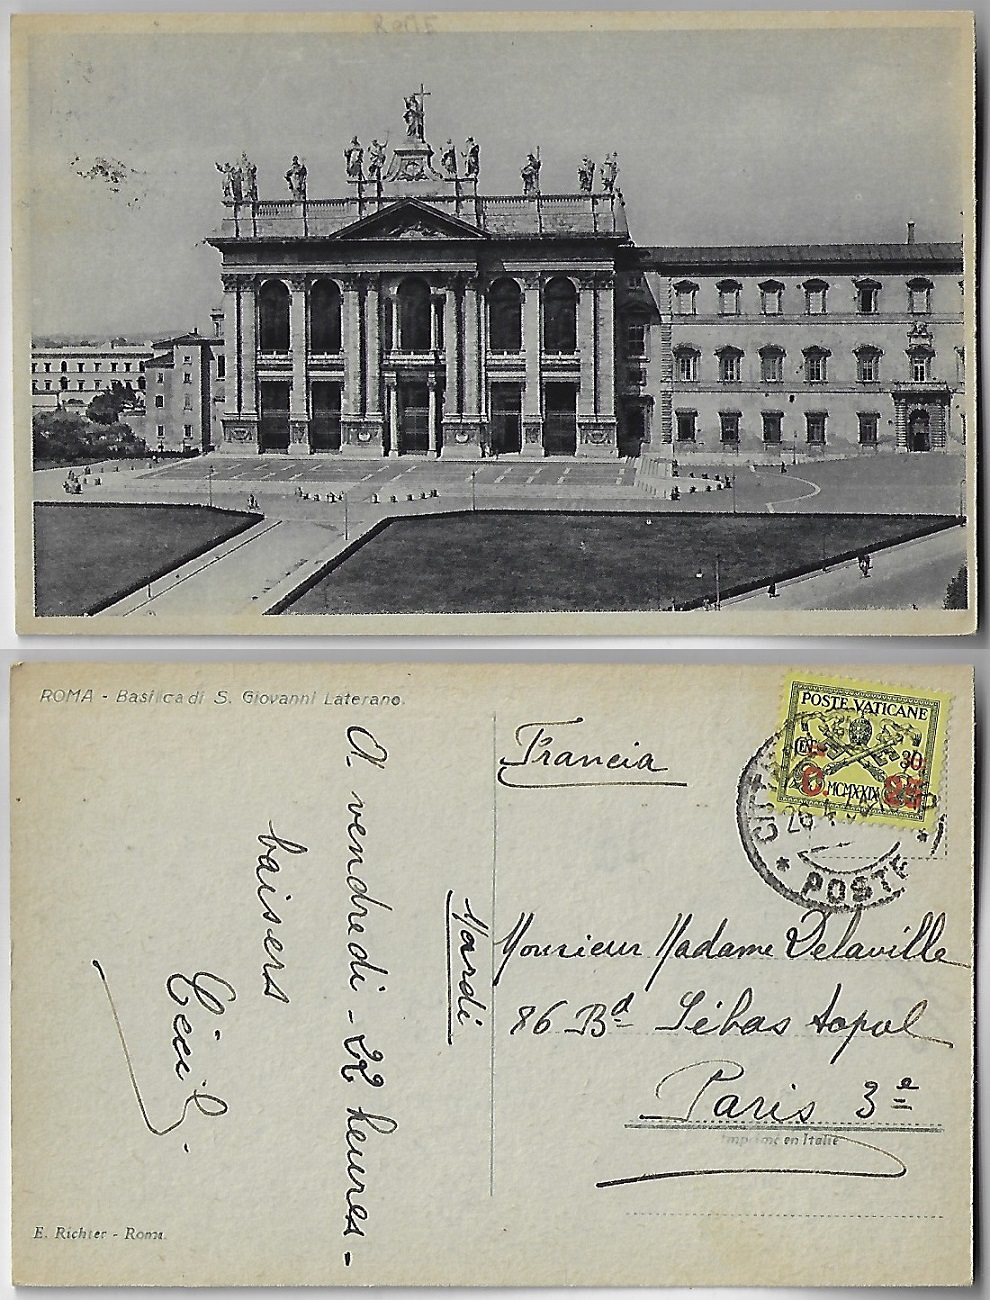 ROMA - Basilica di S. Giovanni Laterano.
Francia
POSTE VATICANE
CENT. 30
C. 25
MCMXXIX
CITTÀ
26 4
POSTE
Mardi
A vendredi - 22 heures -
baisers
Cécil
Monsieur Madame Delaville
86 Bd Sébastopol
Paris 3e
Imprimé en Italie
E. Richter - Roma.